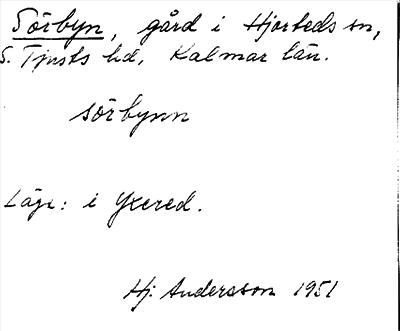 Sörbyn, gård i Hjorteds sn,
S. Tjusts hd, Kalmar län.
sörbynn
Läge: i Yxered.
Hj. Andersson 1951